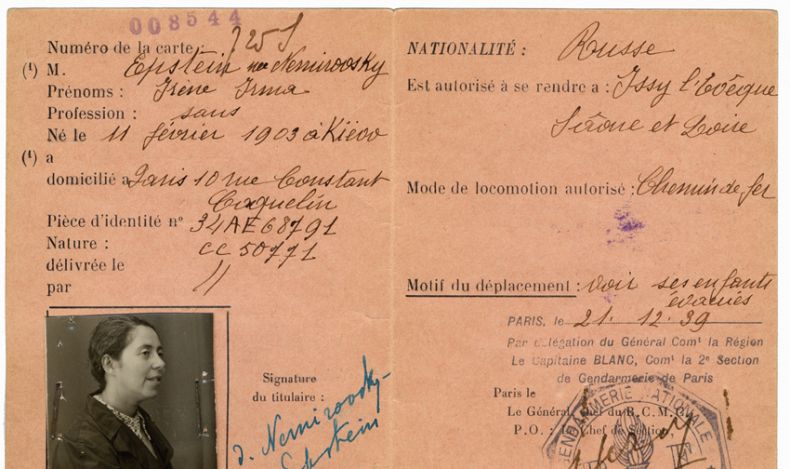 008544
Numéro de la carte : 7251
(1) M. Epstein née Nemirovsky
Prénoms : Irène Irma
Profession : sans
Né le 11 février 1903 à Kiëvo
(1) a
domicilié a Paris 10 rue Constant
Coquelin
Pièce d'identité nº 34AE68791
Nature : CC 50771
délivrée le
par 11
Signature
du titulaire :
I. Nemirovsky-
Epstein
NATIONALITÉ : Russe
Est autorisé à se rendre a : Issy l'Evêque
Sâone et Loire
Mode de locomotion autorisé : Chemin de fer
Motif du déplacement : voir ses enfants
évacués
PARIS, le 21. 12. 39
Par délégation du Général Comt la Région
Le Capitaine BLANC, Comt la 2e Section
de Gendarmerie de Paris
Paris le
Le Général Chef du R.C.M.G.
P.O. : Le Chef de Section
GENDARMERIE NATIONALE